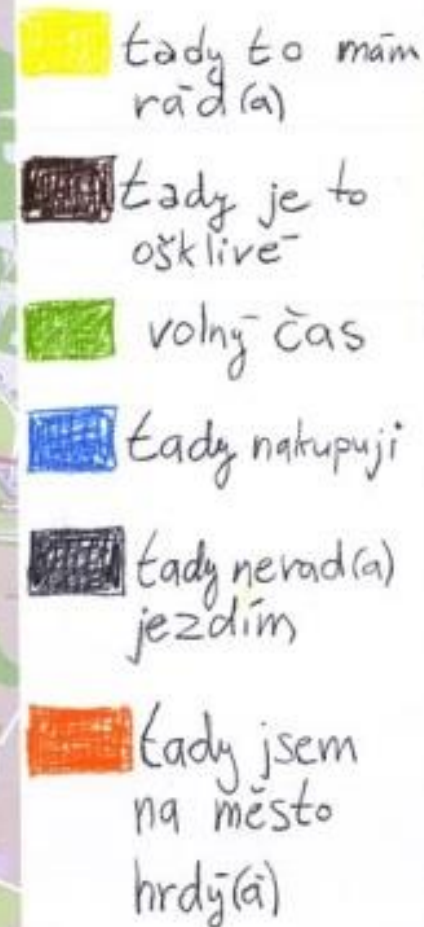 tady to mám
rád(a)
tady je to
ošklivé
volný čas
tady nakupuji
tady nerad(a)
jezdím
tady jsem
na město
hrdý(á)